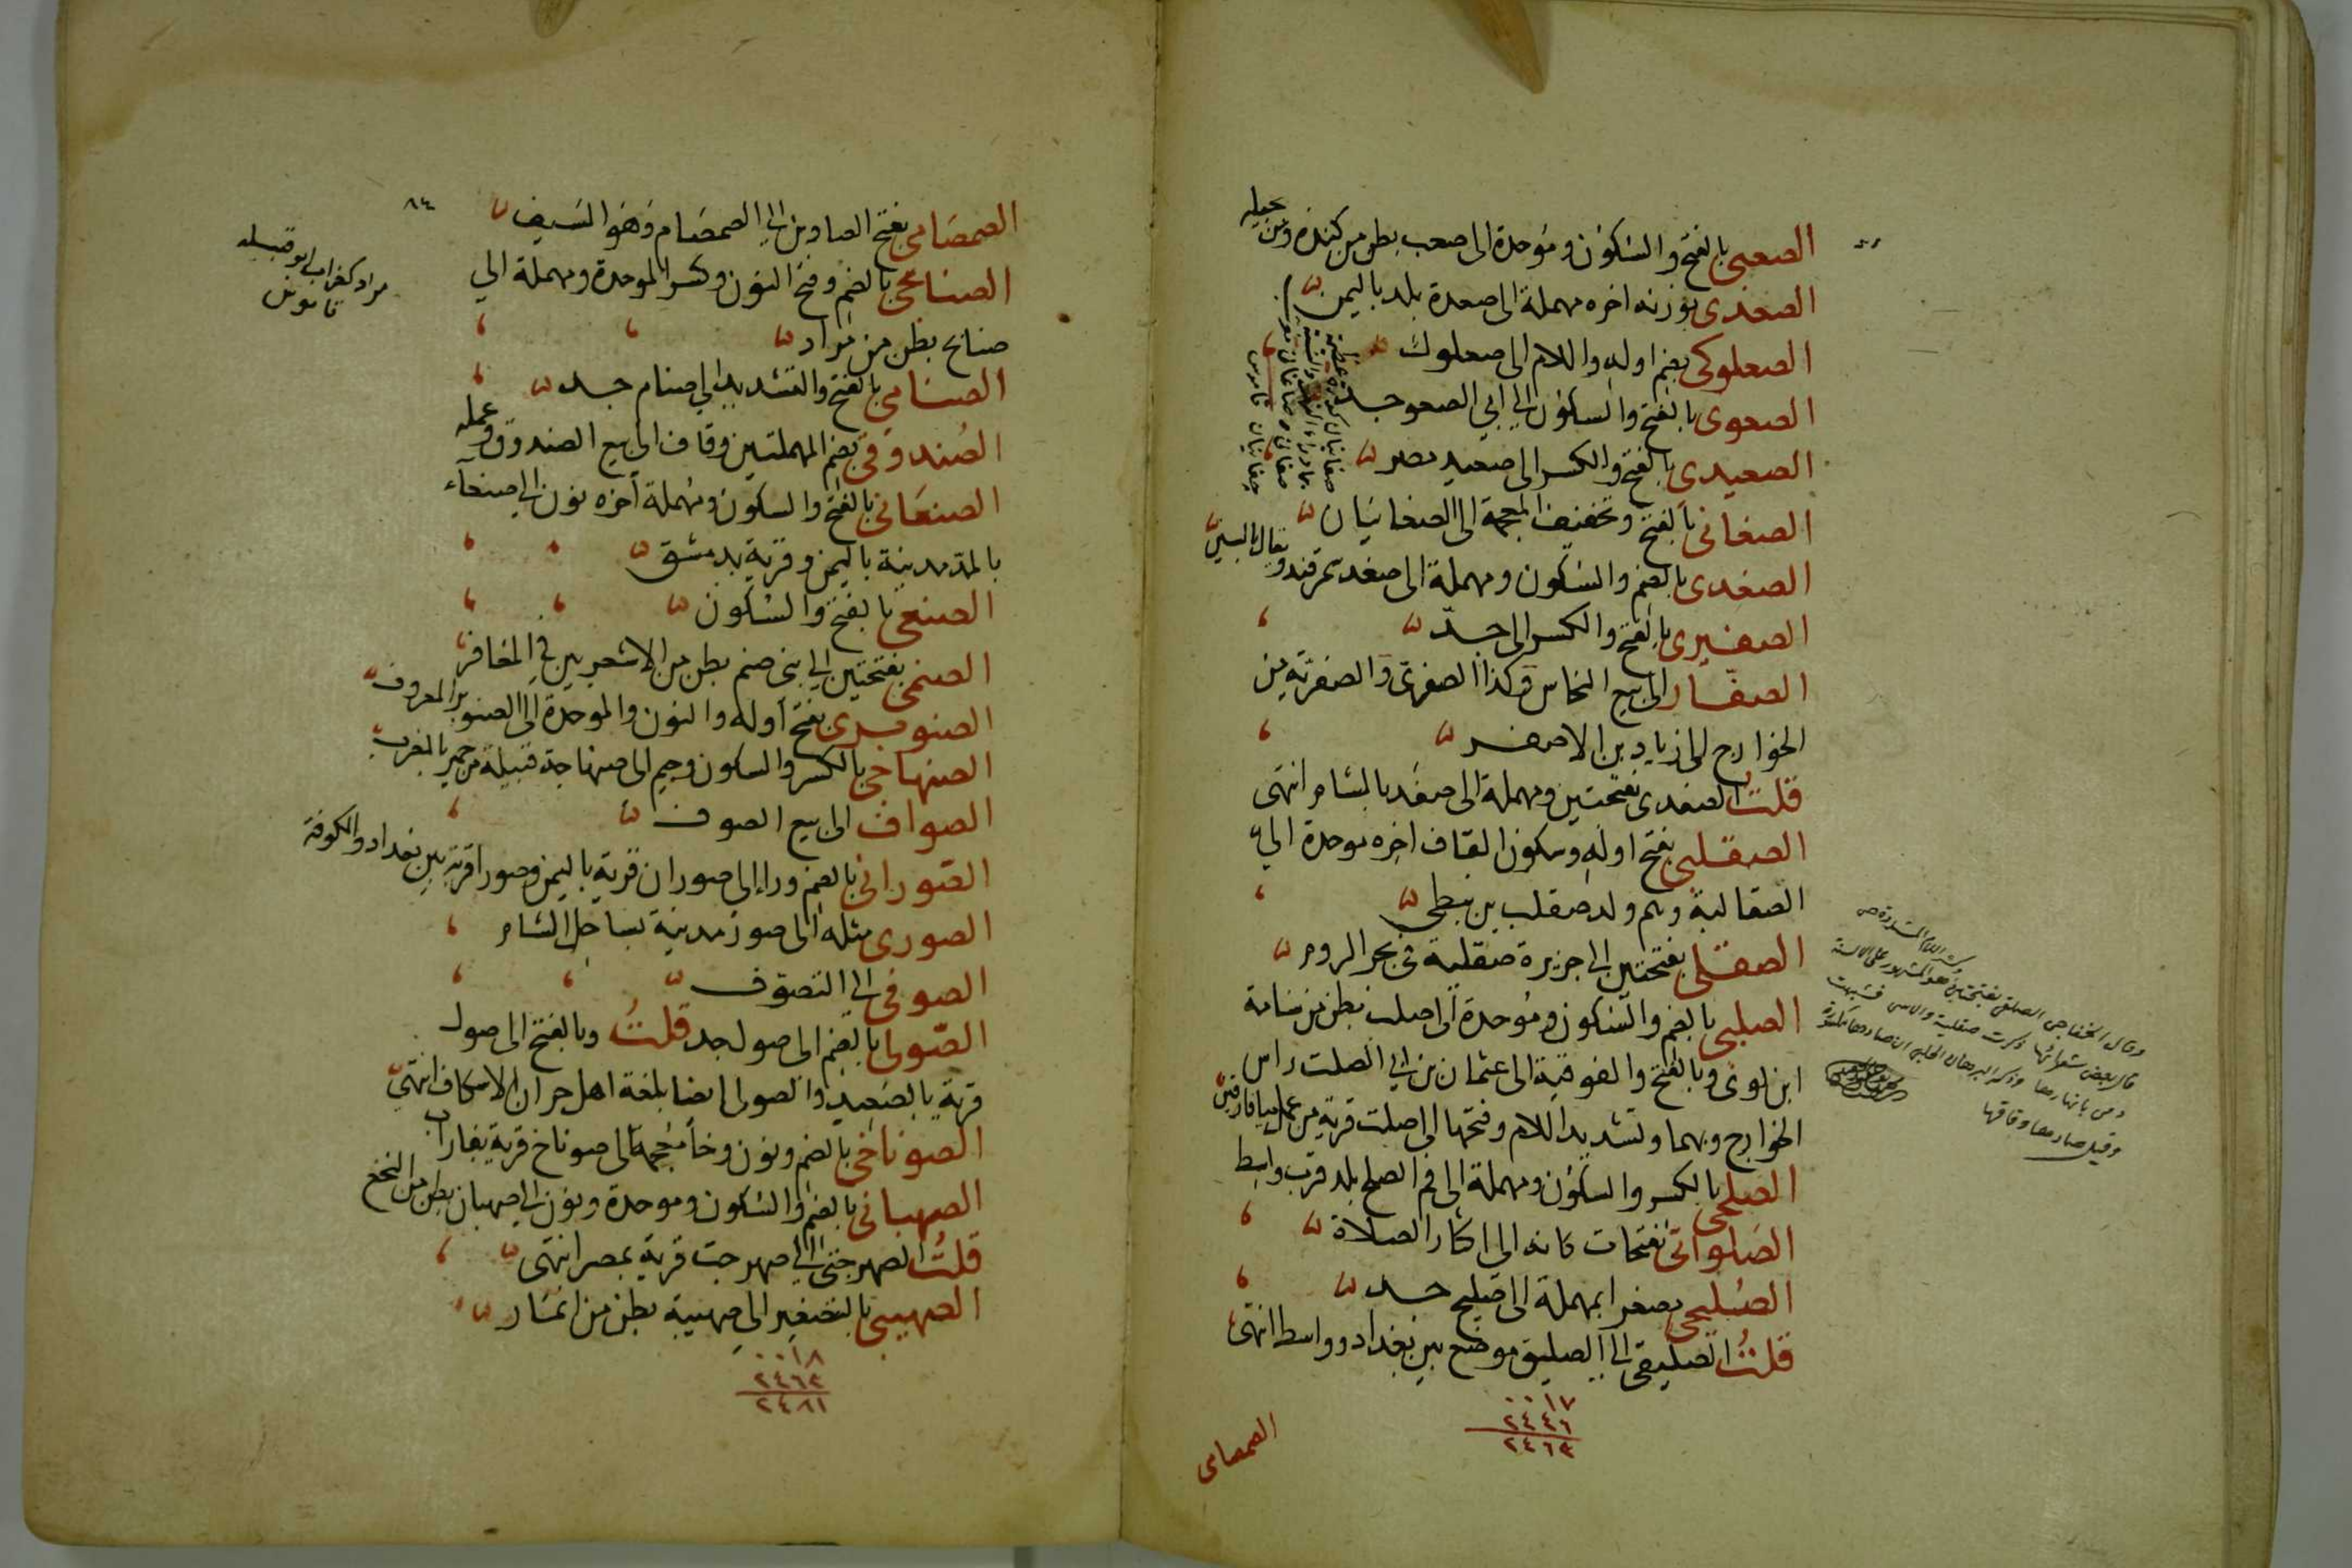 الصعبى بالفتح والسكون وموحدة الى صعب بطن من كندة ومن بجيله
الصعدى بوزنه اخره مهملة الى صعدة بلد باليمن
الصعلوكى بضم اوله واللام الى صعلوك
الصعوى بالفتح والسكون الى ابى الصعو جد
الصعيدى بالفتح والكسر الى صعيد مصر
الصغانى بالفتح وتخفيف المعجمة الى الصغانيان
الصغدى بالضم والسكون ومهملة الى صغد سمرقند ويقال بالسين
الصغيرى بالفتح والكسر الى جد
الصفار الى بيع النحاس وكذا الصفرى والصفرية من
الخوارج الى زياد بن الاصفر
قلت الصفدى بفتحتين ومهملة الى صفد بالشام انتهى
الصقلبى بفتح اوله وسكون القاف اخره موحدة الى
الصقالبة وهم ولد صقلب بن
الصقلى بفتحتين الى جزيرة صقلية فى بحر الروم
الصلبى بالضم والسكون وموحدة الى صلب بطن من سامة
ابن لوى وبالفتح والفوقية الى عثمان بن ابى الصلت راس
الخوارج وبهما وتشديد اللام وفتحها الى اصلت قرية من عمل ميافارقين
الصلحى بالكسر والسكون ومهملة الى فم الصلح بلد قرب واسط
الصلواتى بفتحات كانه الى اكثار الصلاة
الصليحى مصغرا بمهملة الى صليح جد
قلت الصليقى الى الصليق موضع بين بغداد وواسط انتهى
٠٠١٧
٢٤٤٦
٢٤٦٣
الصمصامى
وقال الخفاجى الصقلى بفتحتين
٨٤
الصمصامى بفتح الصادين الى الصمصام وهو السيف
الصنابحى بالضم وفتح النون وكسر الموحدة ومهملة الى
صنابح بطن من مراد
الصنامى بالفتح والتشديد الى صنام جد
الصندوقى بضم المهملتين وقاف الى بيع الصندوق وعمله
الصنعانى بالفتح والسكون ومهملة اخره نون الى صنعاء
بالمد مدينة باليمن وقرية بدمشق
الصنعى بالفتح والسكون
الصنمى بفتحتين الى بنى صنم بطن من الاشعريين فى المعافر
الصنوبرى بفتح اوله والنون والموحدة الى الصنوبر المعروف
الصنهاجى بالكسر والسكون وجيم الى صنهاجة قبيلة من حمير بالمغرب
الصواف الى بيع الصوف
الصورانى بالضم وراء الى صوران قرية باليمن وصورا قرية بين بغداد والكوفة
الصورى مثله الى صور مدينة بساحل الشام
الصوفى الى التصوف
الصولى بالضم الى صول جد قلت وبالفتح الى صول
قرية بالصعيد والصولى ايضا بلغة اهل حران الاسكاف انتهى
الصوناخى بالضم ونون وخاء معجمة الى صوناخ قرية بفاراب
الصهبانى بالضم والسكون وموحدة ونون الى صهبان بطن من النخع
قلت الصهرجتى الى صهرجت قرية بمصر انتهى
الصهيبى بالتصغير الى صهيبة بطن من انمار
٠٠١٨
٢٤٦٣
٢٤٨١
مراد كغراب ابو قبيله
قاموس